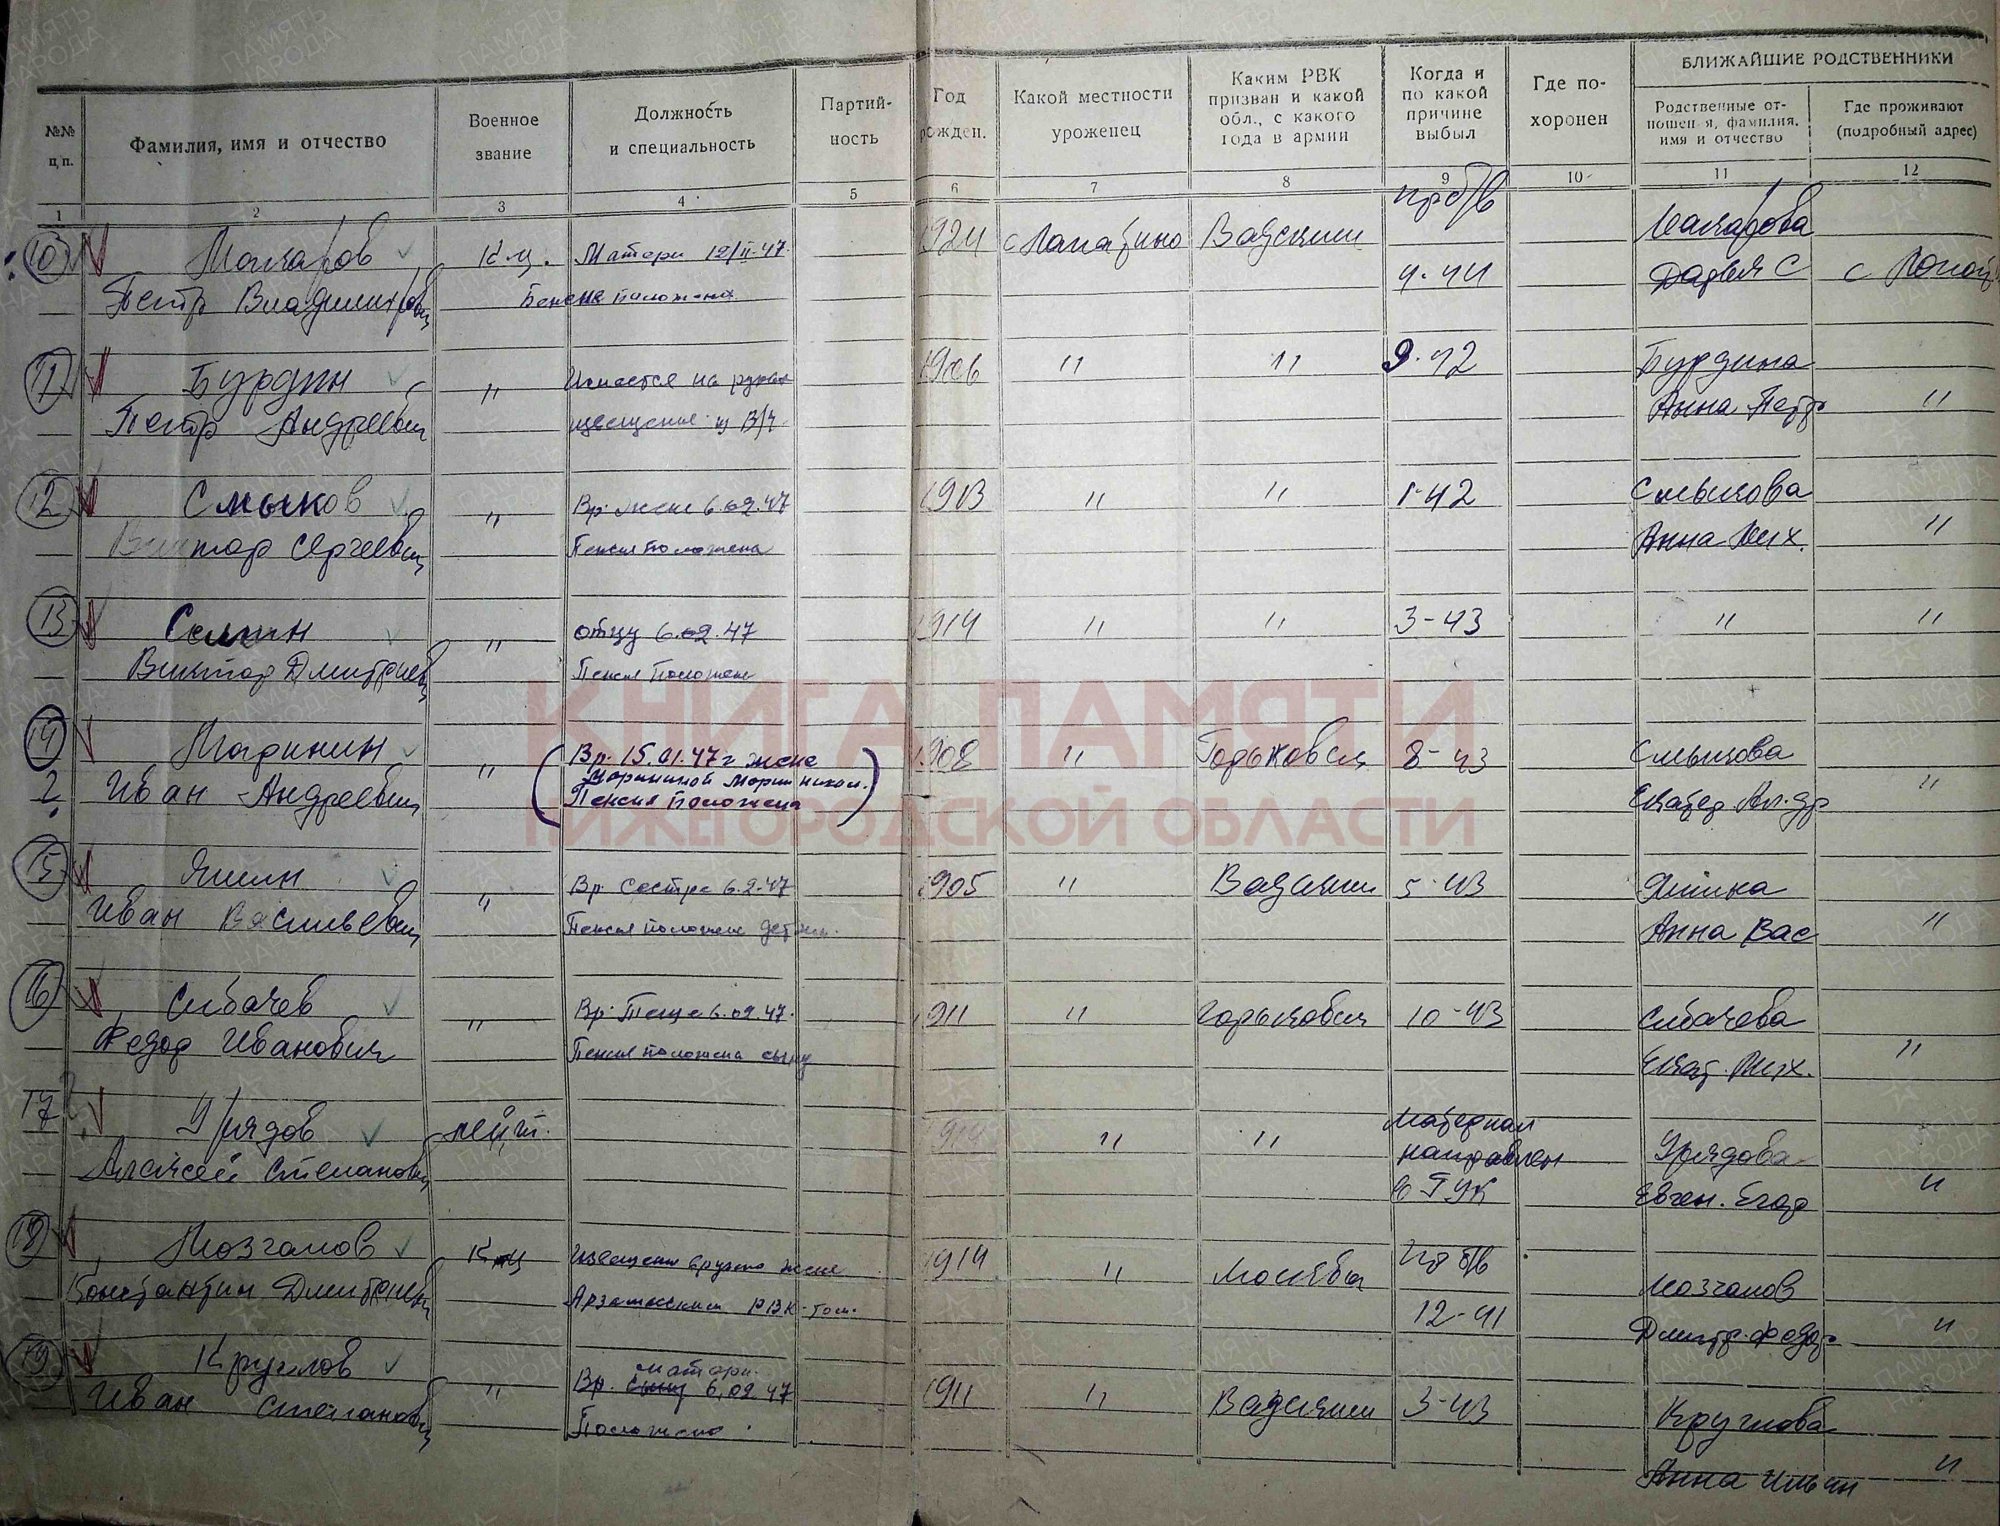 БЛИЖАЙШИЕ РОДСТВЕННИКИ
№№ ц.п.
Фамилия, имя и отчество
Военное звание
Должность и специальность
Партий-ность
Год рожден.
Какой местности уроженец
Каким РВК призван и какой обл., с какого года в армии
Когда и по какой причине выбыл
Где по-хоронен
Родственные от-ношения, фамилия, имя и отчество
Где проживают (подробный адрес)
1 2 3 4 5 6 7 8 9 10 11 12
пр б/в
10 Макаров К-ц. Матери 12/II-47. 1924 Вадским Макарова
Петр Владимирович Пенсия положена 4.44 Дарья С
11 Бурдин " Имеется на руках 1906 " " 9-42 Бурдина
Петр Андреевич извещение из В/ч Анна Петр "
12 Смыков " Вр. жене 6.02.47 1913 " " 1-42 Смыкова
Виктор Сергеевич Пенсия положена Анна Мих. "
13 " отцу 6.02.47 1914 " " 3-43 " "
Виктор Дмитриевич Пенсия положена
14 Маринин " Вр. 15.01.47 г жене 1908 " Горьковск 8-43 Смыкова
2 Иван Андреевич Марининой Марии Никол. "
Пенсия положена
15 Яшин " Вр. Сестре 6.2.47 1905 " Вадским 5-43 Яшина
Иван Васильевич Пенсия положена детям. Анна Вас "
16 Сибачев " Вр. Теще 6.02.47. 1911 " Горьковск 10-43 Сибачева
Федор Иванович Пенсия положена сыну Екат. Мих. "
17 Урядов лейт. 1914 " " Материал Урядова
Алексей Степанович направлен
в ГУК Евген. Егор "
18 Мозгалов К-ц Извещение вручено жене 1914 " Москвы пр б/в Мозгалов
Константин Дмитриевич Арзамасским РВК-том. 12-41 Дмитр. Федор "
19 Круглов " Вр. матери. 6,02 47 1911 " Вадским 3-43 Круглова
Иван Степанович Положена Анна Ильин "
КНИГА ПАМЯТИ
НИЖЕГОРОДСКОЙ ОБЛАСТИ
ПАМЯТЬ НАРОДА